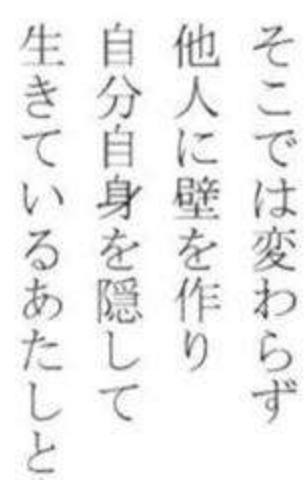 そこでは変わらず
他人に壁を作り
自分自身を隠して
生きているあたしと